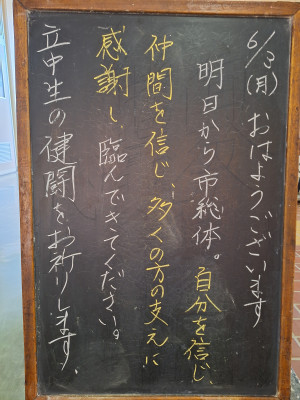 6/3(月) おはようございます
明日から市総体。自分を信じ、
仲間を信じ、多くの方の支えに
感謝し、臨んできてください。
立中生の健闘をお祈りします。